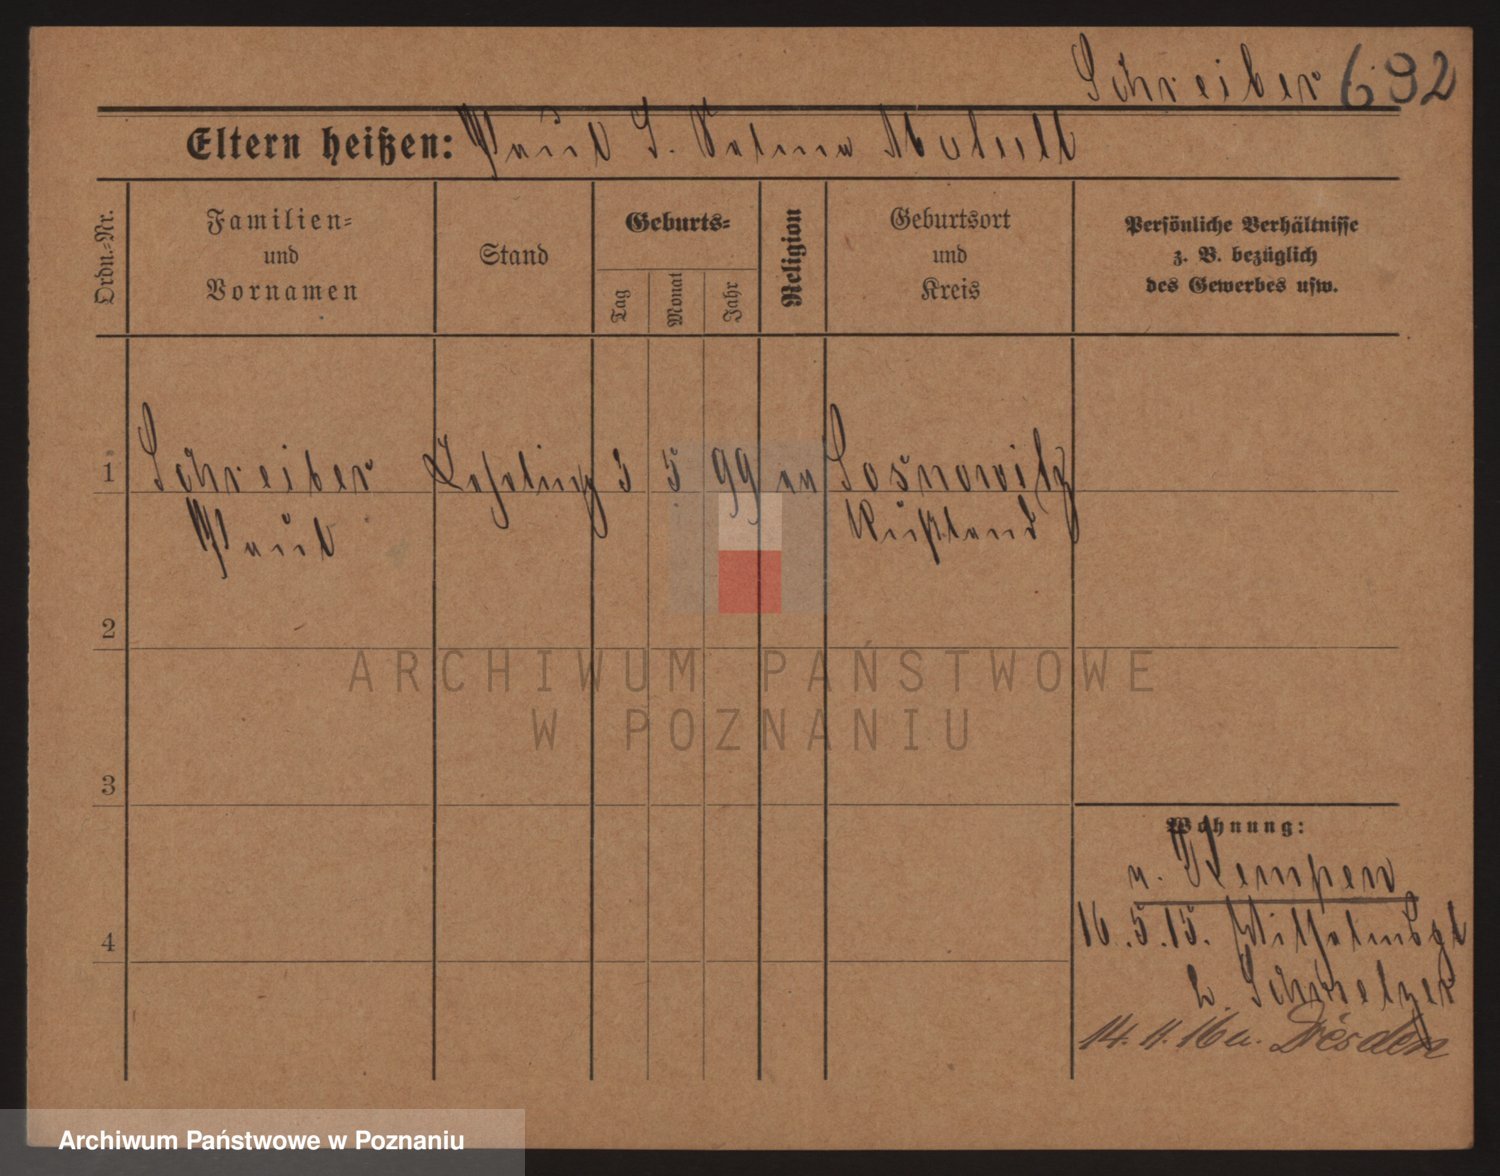 Schreiber 692
Eltern heißen: Paul S. Salma
Ordn.-Nr.
Familien-
und
Vornamen
Stand
Geburts-
Tag
Monat
Jahr
Religion
Geburtsort
und
Kreis
Persönliche Verhältnisse
z. B. bezüglich
des Gewerbes usw.
1 Schreiber Lehrling 3 5 99 Sosnowitz
Paul Rußland
2
3
4
Wohnung:
n. Kempen
16.5.15.
b. Schmelzer
14. 11. 16 n. Dresden
ARCHIWUM PAŃSTWOWE
W POZNANIU
Archiwum Państwowe w Poznaniu